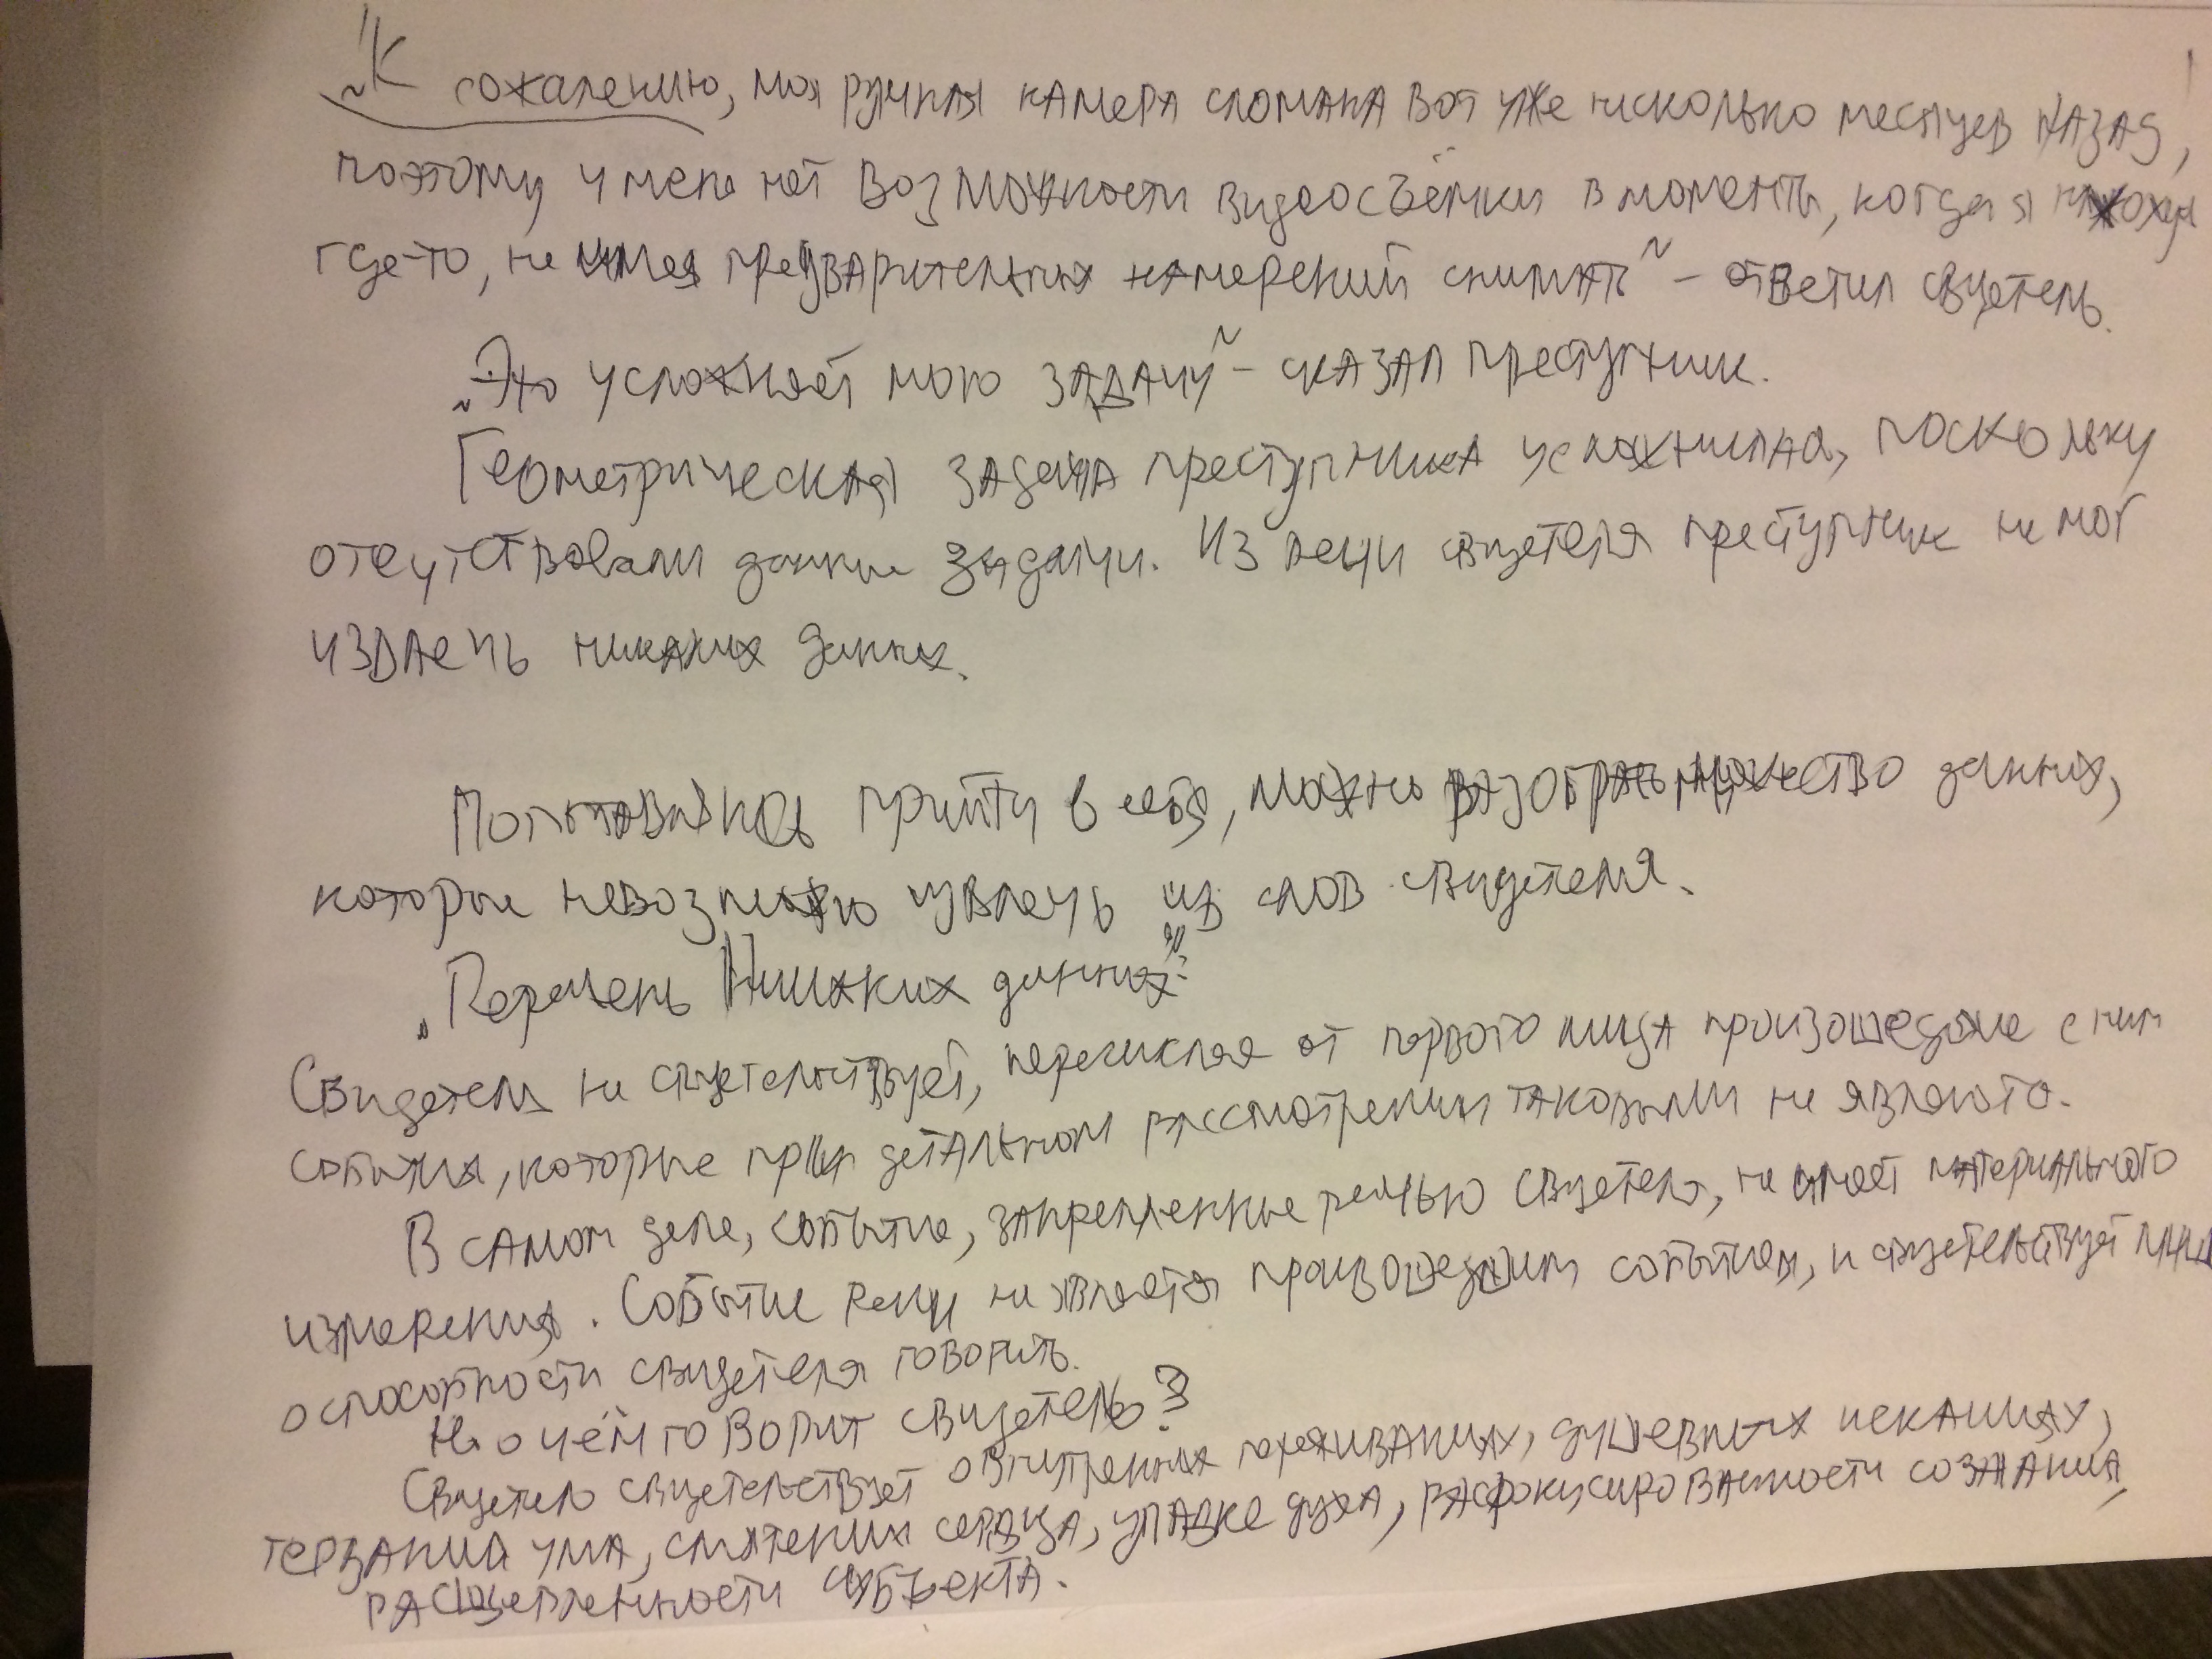 „К сожалению, моя ручная камера сломана вот уже несколько месяцев назад,
поэтому у меня нет возможности видеосъёмки в моменты, когда я нахожусь
где-то, не имея предварительных намерений снимать" – ответил свидетель.
„Это усложняет мою задачу" – сказал преступник.
Геометрическая задача преступника усложнилась, поскольку
отсутствовали данные задачи. Из речи свидетеля преступник не мог
извлечь никаких данных.
Попытавшись прийти в себя, можно разобрать множество данных,
которые невозможно извлечь из слов свидетеля.
„Перечень Никаких данных":
Свидетель не свидетельствует, перечисляя от первого лица произошедшие с ним
события, которые при детальном рассмотрении таковыми не являются.
В самом деле, событие, закрепленные речью свидетеля, не имеет материального
измерения. Событие речи не является произошедшим событием, и свидетельствует лишь
о способности свидетеля говорить.
Но о чём говорит свидетель?
Свидетель свидетельствует о внутренних переживаниях, душевных исканиях,
терзаний ума, смятениях сердца, упадке духа, расфокусированности сознания,
расщепленности субъекта.